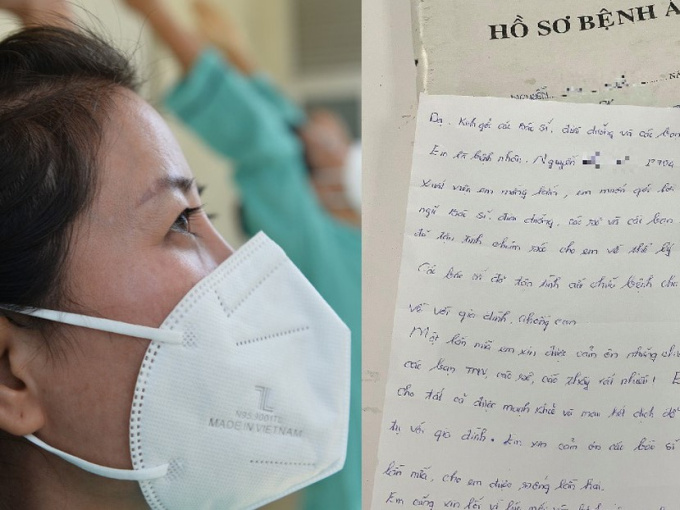 N95 9001TL
MADE IN VIETNAM
HỒ SƠ BỆNH Á
Dạ. Kính gởi các bác sĩ, điều dưỡng và các bạn
Em là bệnh nhân. Nguyễn
Xuất viện em mừng lắm, em muốn gởi lời
ngũ bác sĩ, điều dưỡng, các sơ và các bạn
đã tận tình chăm sóc cho em về thể lý
Các bác sĩ đã tận tình cứu chữa bệnh cho
về với gia đình, chồng con
Một lần nữa em xin được cảm ơn những
các bạn TNV, các sơ, các thầy rất nhiều!
cho tất cả được mạnh khỏe và mau hết dịch để
tụ với gia đình. Em xin cảm ơn các bác sĩ
lần nữa, cho em được sống lần hai.
Em cũng xin lỗi vì